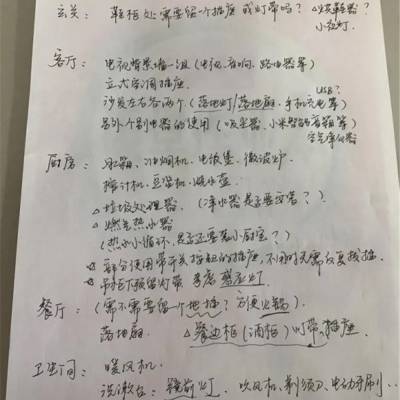 玄关：鞋柜处需要留一个插座 或灯带吗？ △烘鞋器？
小夜灯？
客厅：电视背景墙一组（电视、音响、路由器等）
立式空调插座
USB？
沙发左右各两个（落地灯/落地扇、手机充电等）
另外个别电器的使用（吸尘器、小米智能音箱等）
空气净化器
厨房：冰箱、油烟机、电饭煲、微波炉
榨汁机、豆浆机、烧水壶
△垃圾处理器（净水器是否要安装？）
△燃气热水器
（热水小循环，是否还要装小厨宝？）
△部分使用带开关按钮的插座，不用时无需反复拔插
△吊柜下预留灯带 考虑感应灯
餐厅：（需不需要留一个地插？方便火锅）
落地扇 △餐边柜（酒柜）灯带、插座
卫生间：暖风机
洗漱台：镜前灯、吹风机、剃须刀、电动牙刷…